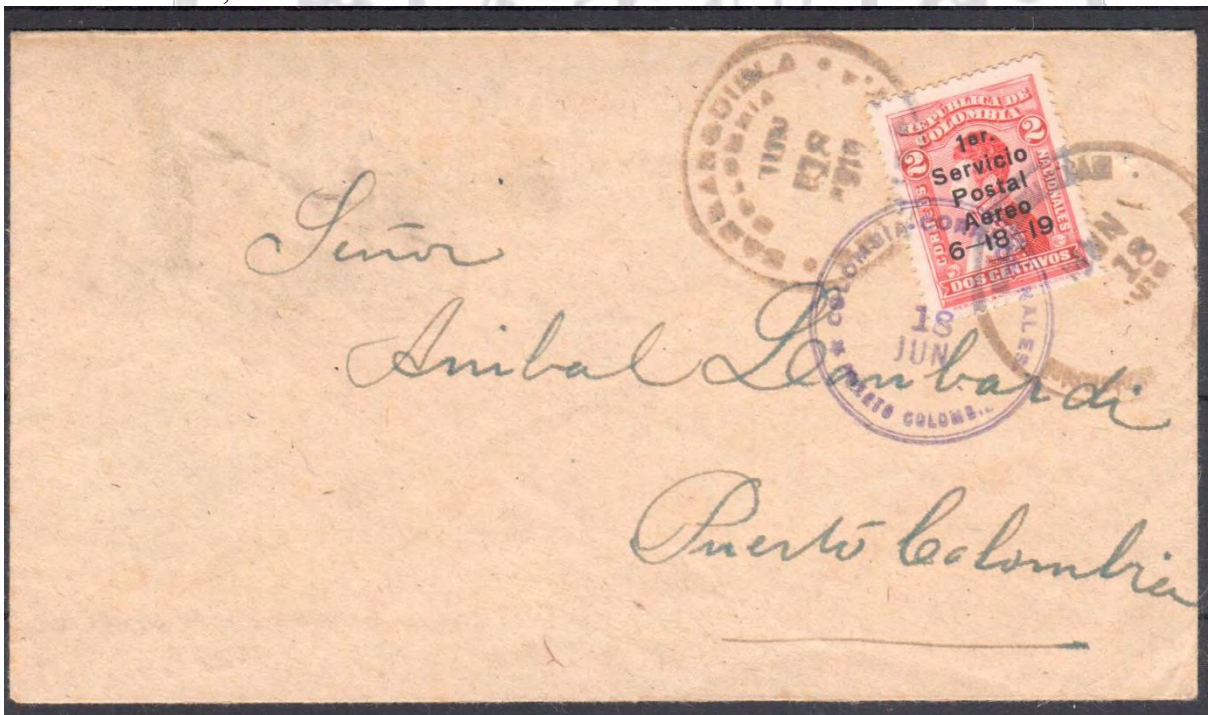 BARRANQUILLA
COLOMBIA
JUN
18
1919
REPUBLICA DE
COLOMBIA
2
2
CORREOS
NACIONALES
1er.
Servicio
Postal
Aereo
6-18-19
DOS CENTAVOS
COLOMBIA-CORREOS NACIONALES
18
JUN
PUERTO COLOMBIA
JUN
18
Señor
Anibal Lombardi
Puerto Colombia